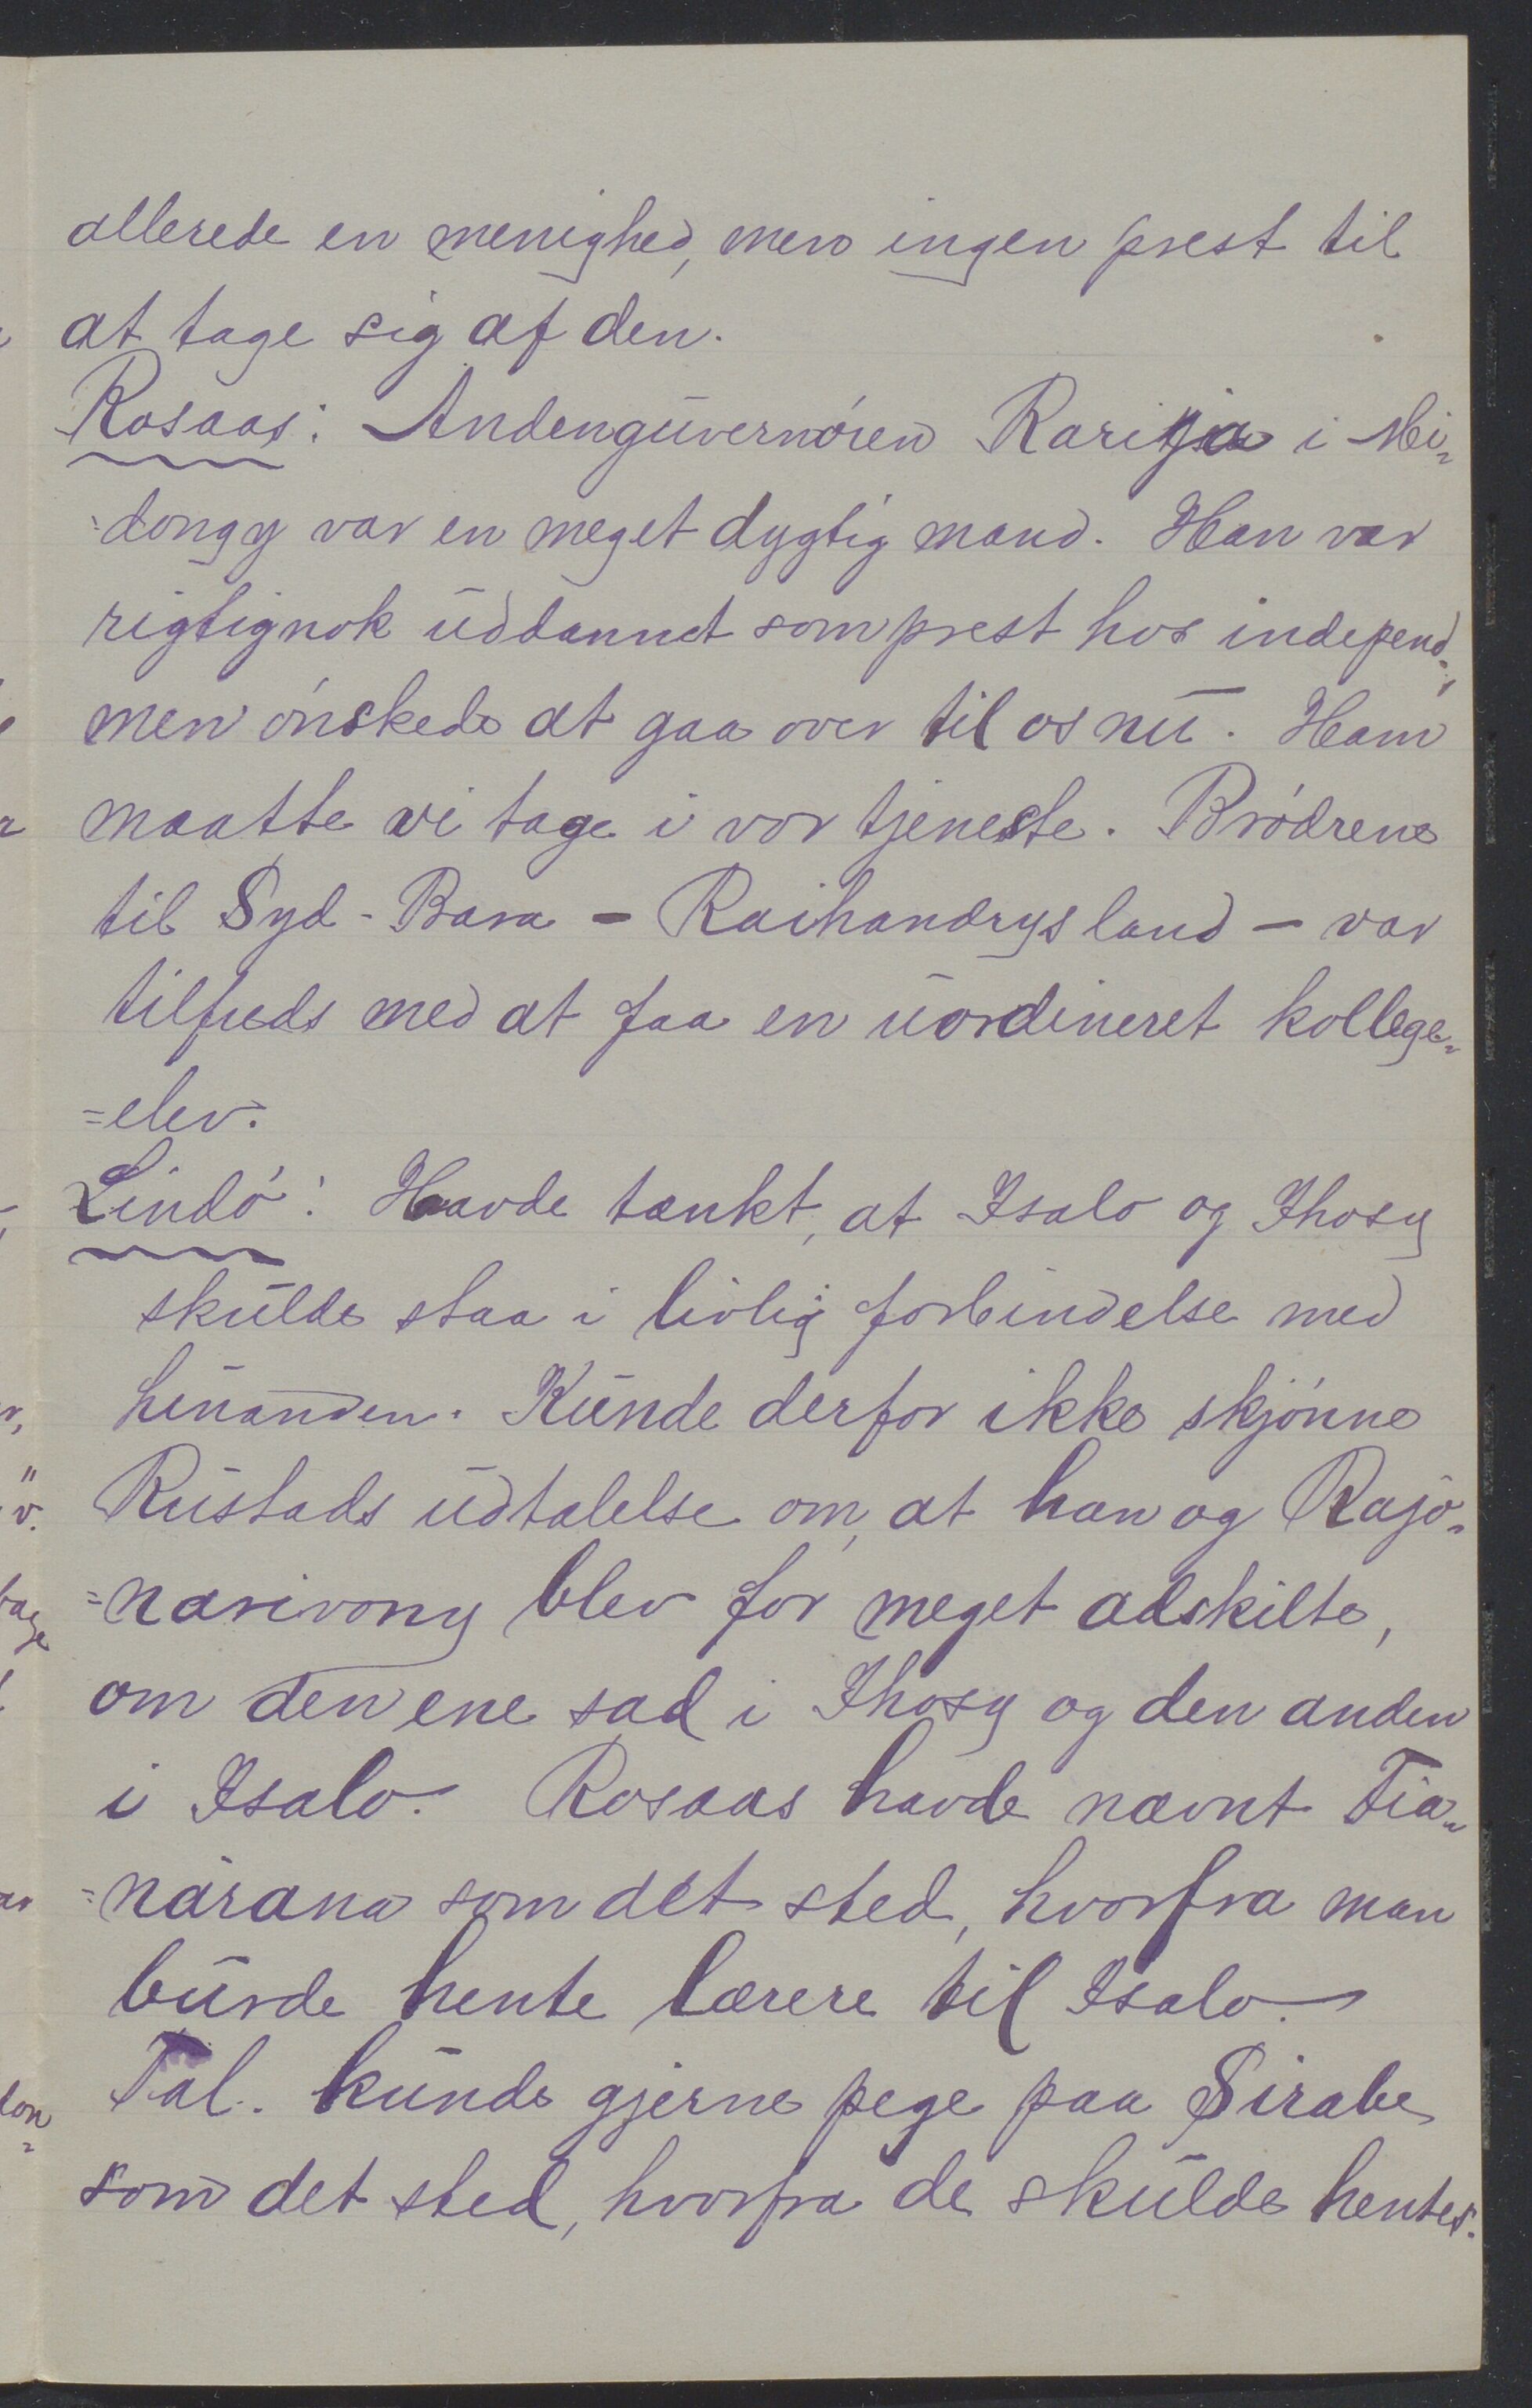 allerede en menighed, men ingen prest til
at tage sig af den.
Rosaas: Andenguvernören Rarija i Mi-
=dongy var en meget dygtig mand. Han var
rigtignok uddannet som prest hos independ.,
men ønskede at gaa over til os nu. Ham
maatte vi tage i vor tjeneste. Brødrene
til Syd-Bara - Raihandrys land - var
tilfreds med at faa en uordineret kollege-
=elev.
Lindø: Havde tænkt, at Isalo og Ihosy
skulde staa i livlig forbindelse med
hinanden. Kunde derfor ikke skjønne
Rustads udtalelse om, at han og Rajo-
=narivony blev for meget adskilte,
om den ene sad i Ihosy og den anden
i Isalo. Rosaas havde nævnt Fia-
=närana som det sted, hvorfra man
burde hente lærere til Isalo.
Tal. kunde gjerne pege paa Sirabe
som det sted, hvorfra de skulde hentes.